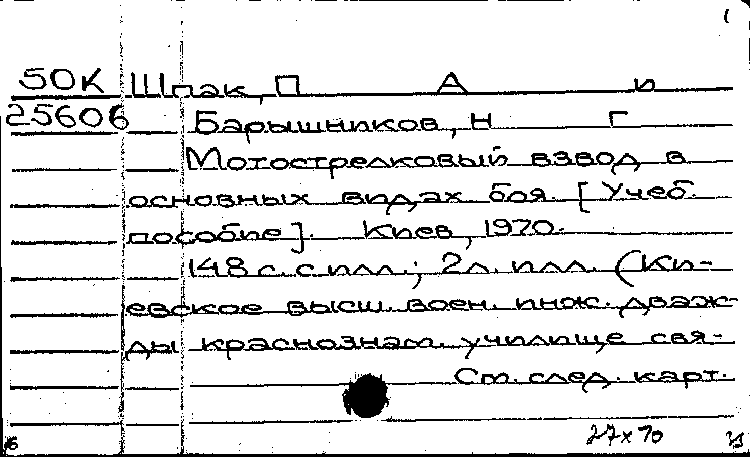 50К Шпак, П А и
25606 Барышников, Н Г
Мотострелковый взвод в
основных видах боя. [Учеб.
пособие]. Киев, 1970.
148 с. с илл.; 2л. илл. (Ки-
евское высш. воен. инж. дваж-
ды краснознам. училище свя-
См. след. карт.
27х70